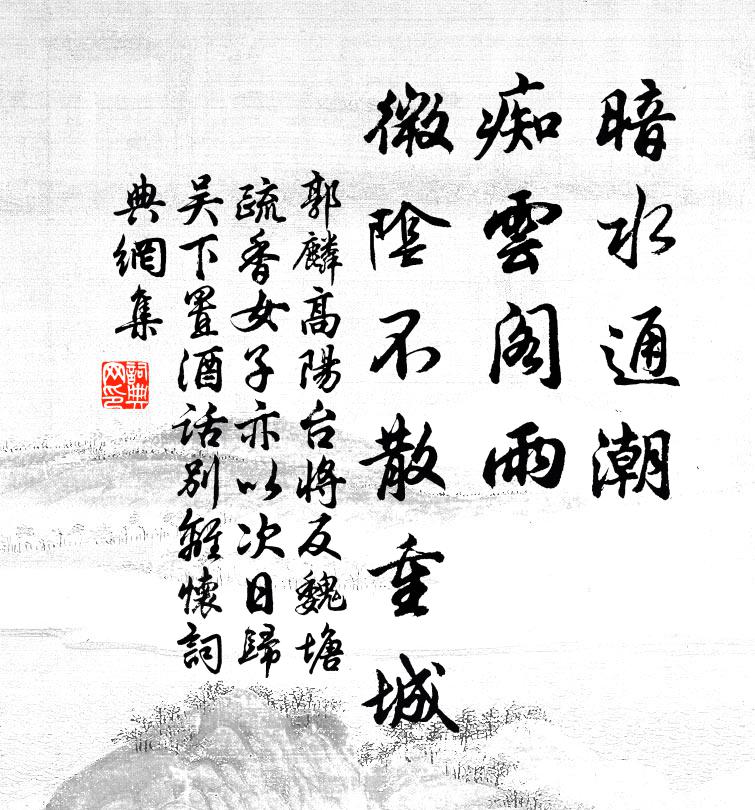 暗水通潮
痴雲閣雨
微陰不散重城
郭麟高陽台將反魏塘
疏香女子亦以次日歸
吴下置酒話別離懷詞
典網集
詞典
网印